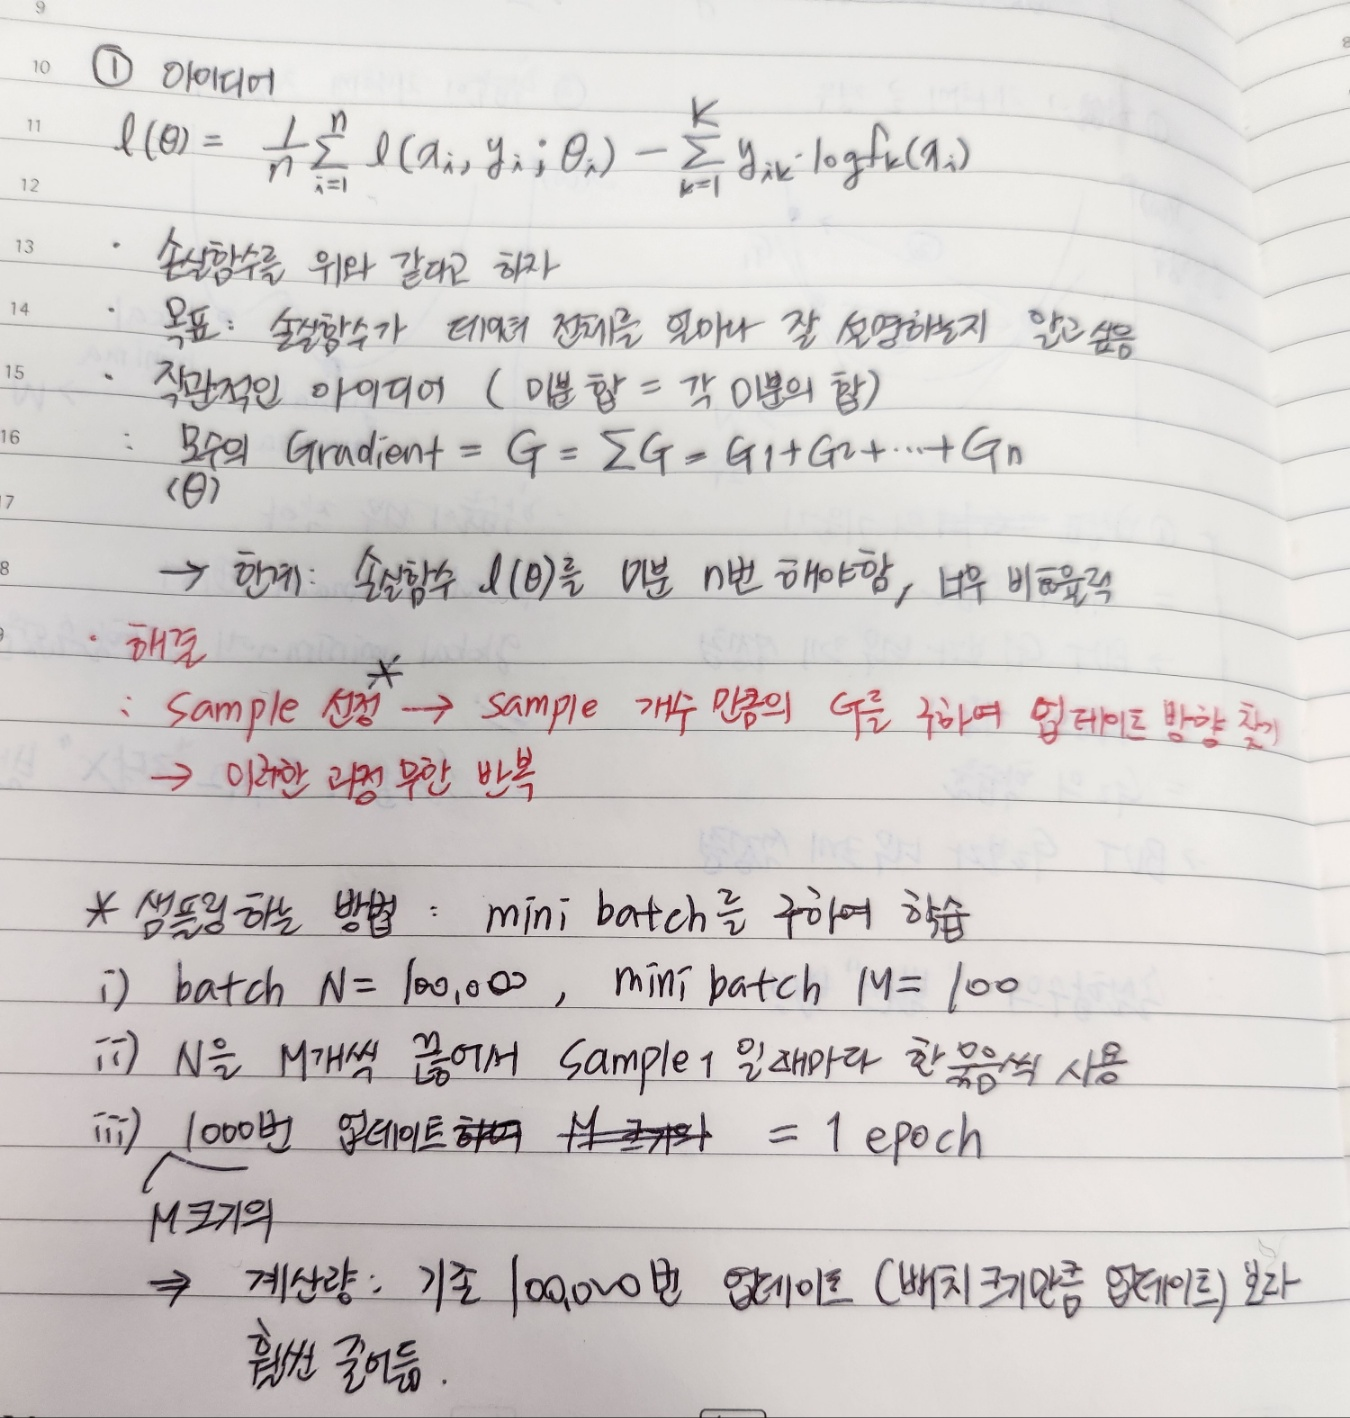 9
10 ① 아이디어
11 l(θ) = 1/n Σ_{i=1}^{n} l(x_i, y_i ; θ_i) - Σ_{k=1}^{K} y_{ik} · log f_k(x_i)
12
13 · 손실함수를 위와 같다고 하자
14 · 목표: 손실함수가 데이터 전체를 얼마나 잘 설명하는지 알고 싶음
15 · 직관적인 아이디어 ( 미분 합 = 각 미분의 합)
16 : 모수의 Gradient = G = ΣG = G1+G2+···+Gn
17 (θ)
8 → 한계: 손실함수 l(θ)를 미분 n번 해야함, 너무 비효율적
9 · 해결
: Sample 선정* → sample 개수 만큼의 G를 구하여 업데이트 방향 찾기
→ 이러한 과정 무한 반복
* 샘플링하는 방법 : mini batch를 구하여 학습
i) batch N= 100,000 , mini batch M= 100
ii) N을 M개씩 끊어서 Sample 1 일때마다 한묶음씩 사용
iii) 1000번 업데이트하여 M 크기의 = 1 epoch
M크기의
⇒ 계산량: 기존 100,000번 업데이트 (배치크기만큼 업데이트) 보다
훨씬 줄어듦.